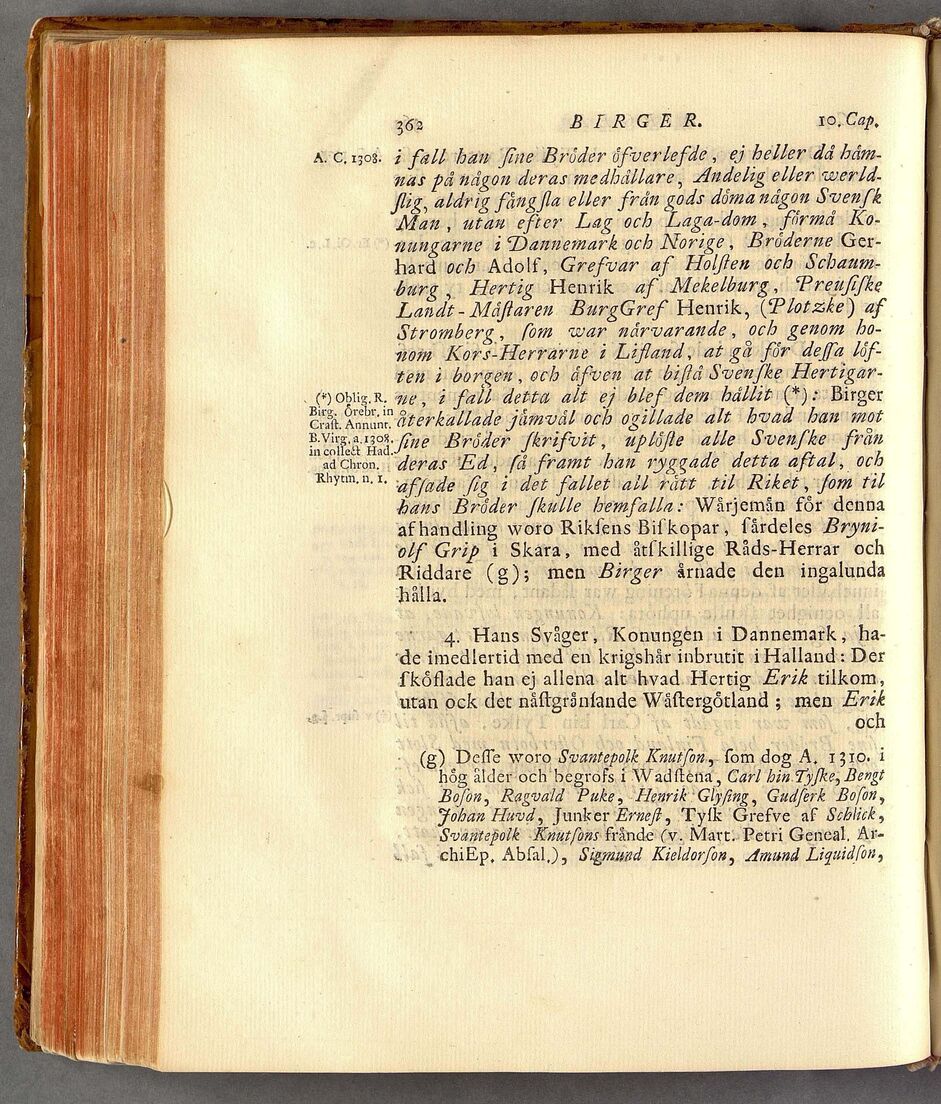 362 BIRGER. 10. Cap.
A. C. 1308. i fall han ſine Bröder öfverlefde, ej heller då häm-
nas på någon deras medhållare, Andelig eller werld-
ſlig, aldrig fångſla eller från gods döma någon Svenſk
Man, utan efter Lag och Laga-dom, förmå Ko-
nungarne i Dannemark och Norige, Bröderne Ger-
hard och Adolf, Grefvar af Holſten och Schaum-
burg, Hertig Henrik af Mekelburg, Preuſiſke
Landt-Mäſtaren BurgGref Henrik, (Plotzke) af
Stromberg, ſom war närvarande, och genom ho-
nom Kors-Herrarne i Lifland, at gå för deſſa löf-
ten i borgen, och äfven at biſtå Svenſke Hertigar-
ne, i fall detta alt ej blef dem hållit (*): Birger
återkallade jämväl och ogillade alt hvad han mot
ſine Bröder ſkrifvit, uplöſte alle Svenſke från
deras Ed, ſå framt han ryggade detta aftal, och
afſade ſig i det fallet all rätt til Riket, ſom til
hans Bröder ſkulle hemfalla: Wärjemän för denna
afhandling woro Rikſens Biſkopar, ſärdeles Bryni-
olf Grip i Skara, med åtſkillige Råds-Herrar och
Riddare (g); men Birger ärnade den ingalunda
hålla.
(*) Oblig. R.
Birg. Örebr. in
Craſt. Annunt.
B. Virg. a. 1308.
in collect Had.
ad Chron.
Rhytm. n. 1.
4. Hans Svåger, Konungen i Dannemark, ha-
de imedlertid med en krigshär inbrutit i Halland: Der
ſköflade han ej allena alt hvad Hertig Erik tilkom,
utan ock det näſtgränſande Wäſtergötland; men Erik
och
(g) Deſſe woro Svantepolk Knutſon, ſom dog A. 1310. i
hög ålder och begrofs i Wadſtena, Carl hin Tyſke, Bengt
Boſon, Ragvald Puke, Henrik Glyſing, Gudſerk Boſon,
Johan Huvd, Junker Erneſt, Tyſk Grefve af Schlick,
Svantepolk Knutſons frände (v. Matt. Petri Geneal. Ar-
chiEp. Abſal.), Sigmund Kieldorſon, Amund Liquidſon,